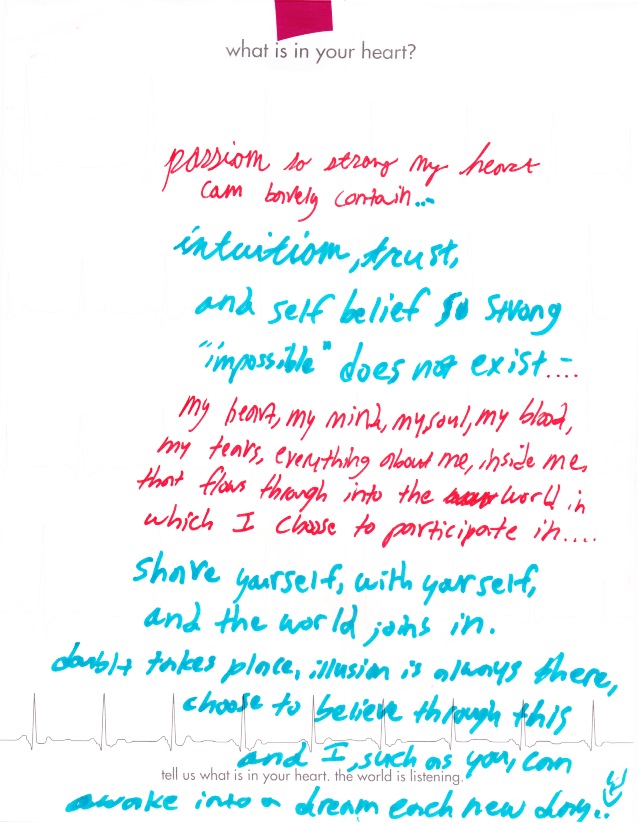 what is in your heart?
passion so strong my heart
can barely contain...
intuition, trust,
and self belief so strong
"impossible" does not exist....
my heart, my mind, my soul, my blood,
my tears, everything about me, inside me,
that flows through into the world in
which I choose to participate in....
share yourself, with yourself,
and the world joins in.
doubt takes place, illusion is always there,
choose to believe through this
and I, such as you, can
tell us what is in your heart. the world is listening.
awake into a dream each new day..